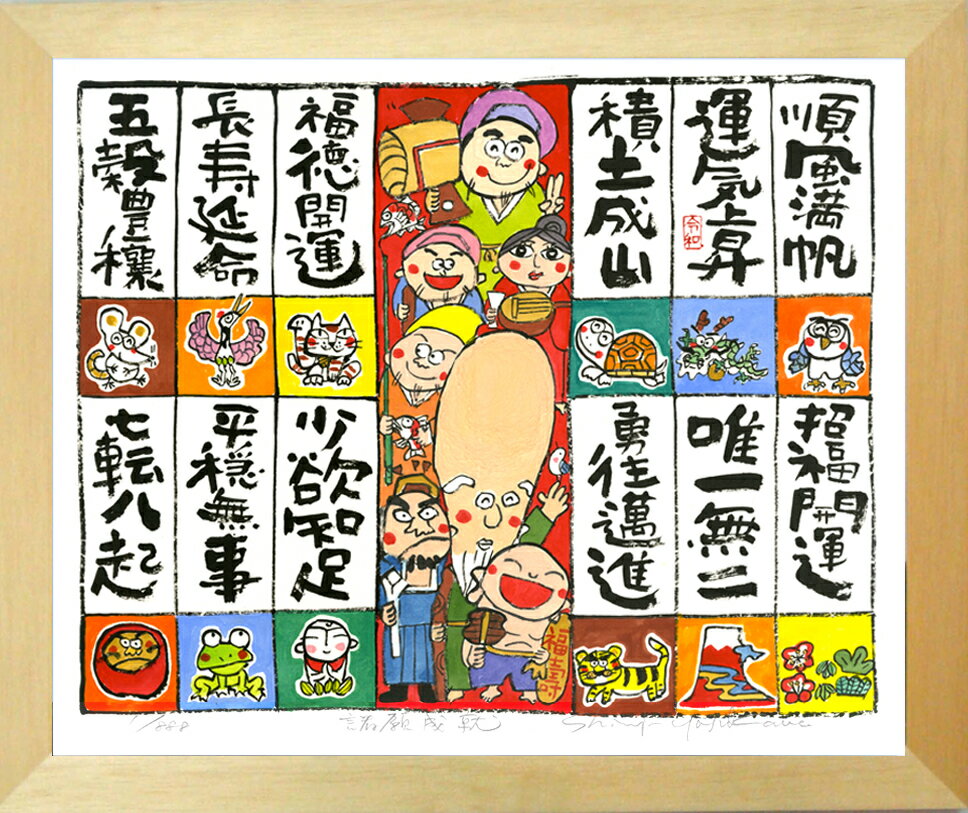 順風満帆
運気上昇
令和
積土成山
福徳開運
長寿延命
五穀豊穣
招福開運
唯一無二
勇往邁進
少欲知足
平穏無事
七転八起
福寿
/888
諸願成就